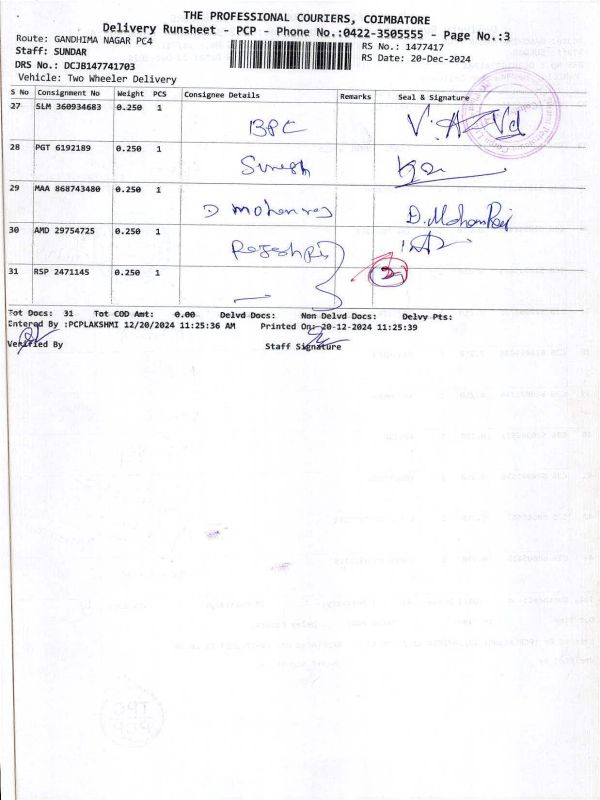 THE PROFESSIONAL COURIERS, COIMBATORE
Delivery Runsheet - PCP - Phone No.:0422-3505555 - Page No.:3
Route: GANDHIMA NAGAR PC4 RS No.: 1477417
Staff: SUNDAR RS Date: 20-Dec-2024
DRS No.: DCJB147741703
Vehicle: Two Wheeler Delivery
S No Consignment No Weight PCS Consignee Details Remarks Seal & Signature
27 SLM 360934683 0.250 1
BPC
28 PGT 6192189 0.250 1
Suresh
29 MAA 868743480 0.250 1
D mohanraj D.MohanRaj
30 AMD 29754725 0.250 1
31 RSP 2471145 0.250 1
Tot Docs: 31 Tot COD Amt: 0.00 Delvd Docs: Non Delvd Docs: Delvy Pts:
Entered By :PCPLAKSHMI 12/20/2024 11:25:36 AM Printed On: 20-12-2024 11:25:39
Verified By Staff Signature